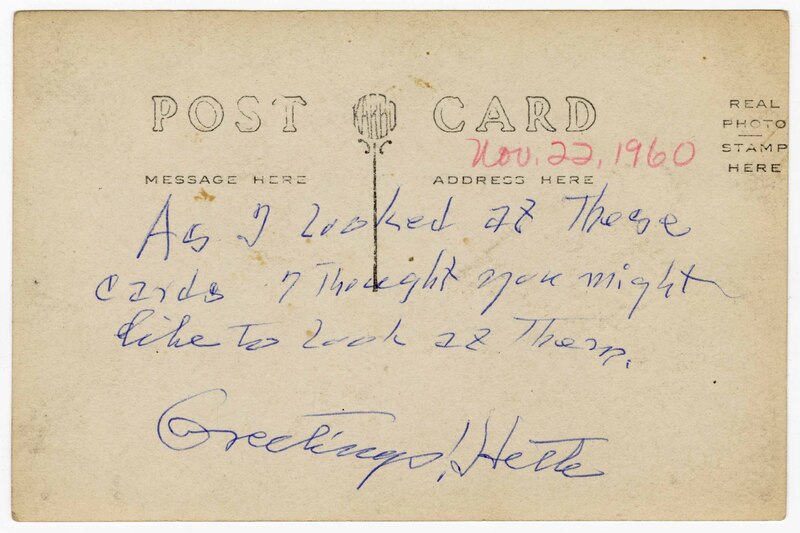 POST CARD
REAL
PHOTO
STAMP
HERE
Nov. 22, 1960
MESSAGE HERE
ADDRESS HERE
As I looked at These
cards I Thought you might
like to look at Them.
Greetings!